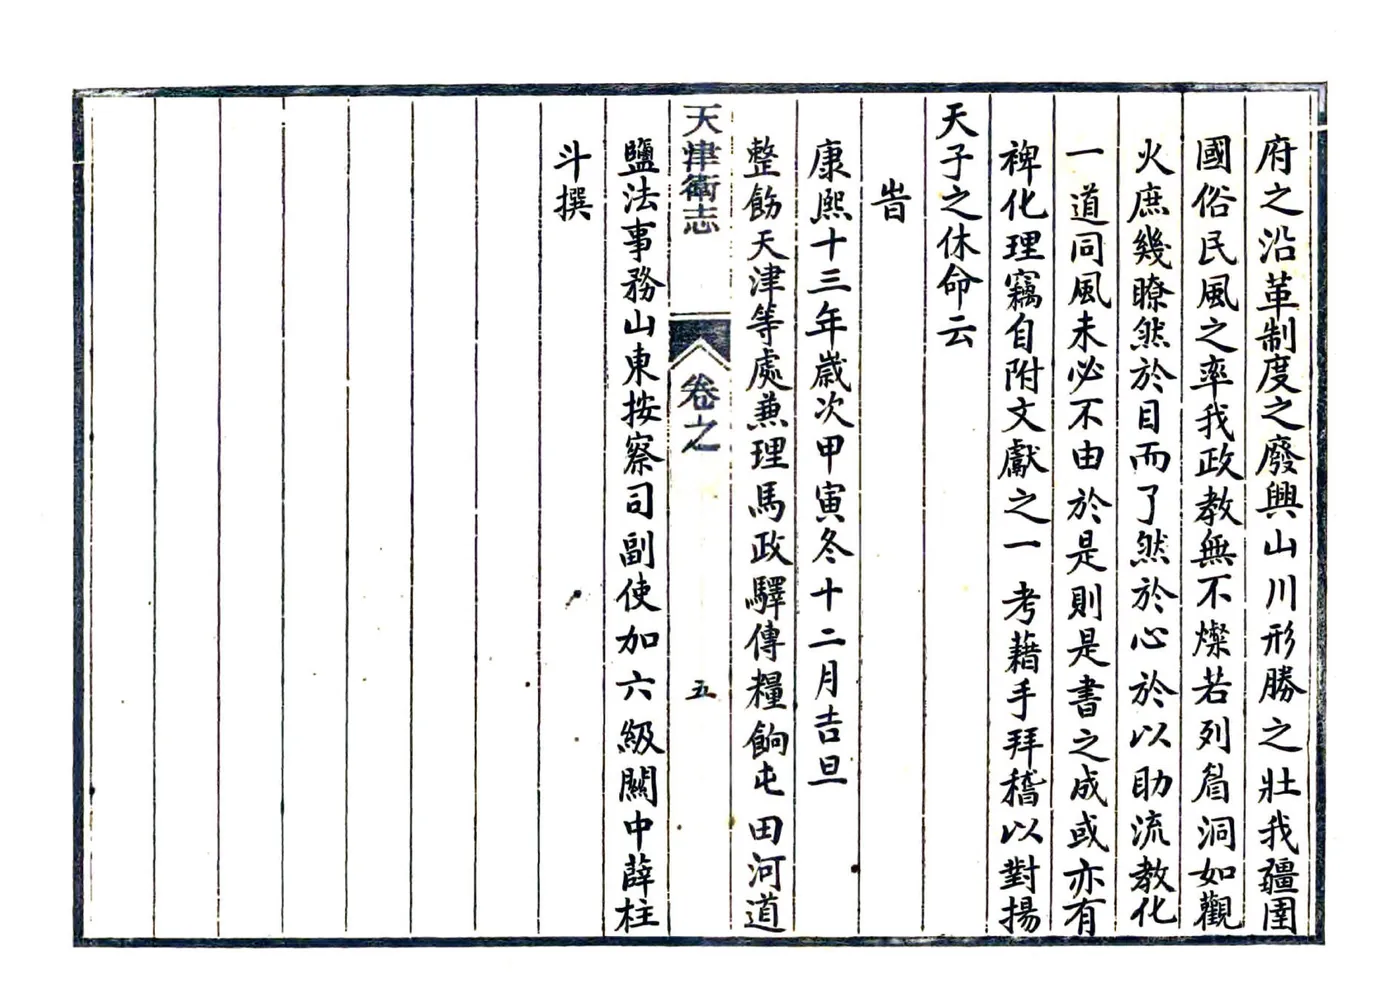 府之沿革制度之廢興山川形勝之壯我疆圉
國俗民風之率我政教無不燦若列眉洞如觀
火庶幾瞭然於目而了然於心於以助流教化
一道同風未必不由於是則是書之成或亦有
裨化理竊自附文獻之一考藉手拜稽以對揚
天子之休命云
旹
康熙十三年歲次甲寅冬十二月吉旦
整飭天津等處兼理馬政驛傳糧餉屯田河道
天津衛志 卷之 五
鹽法事務山東按察司副使加六級關中薛柱
斗撰